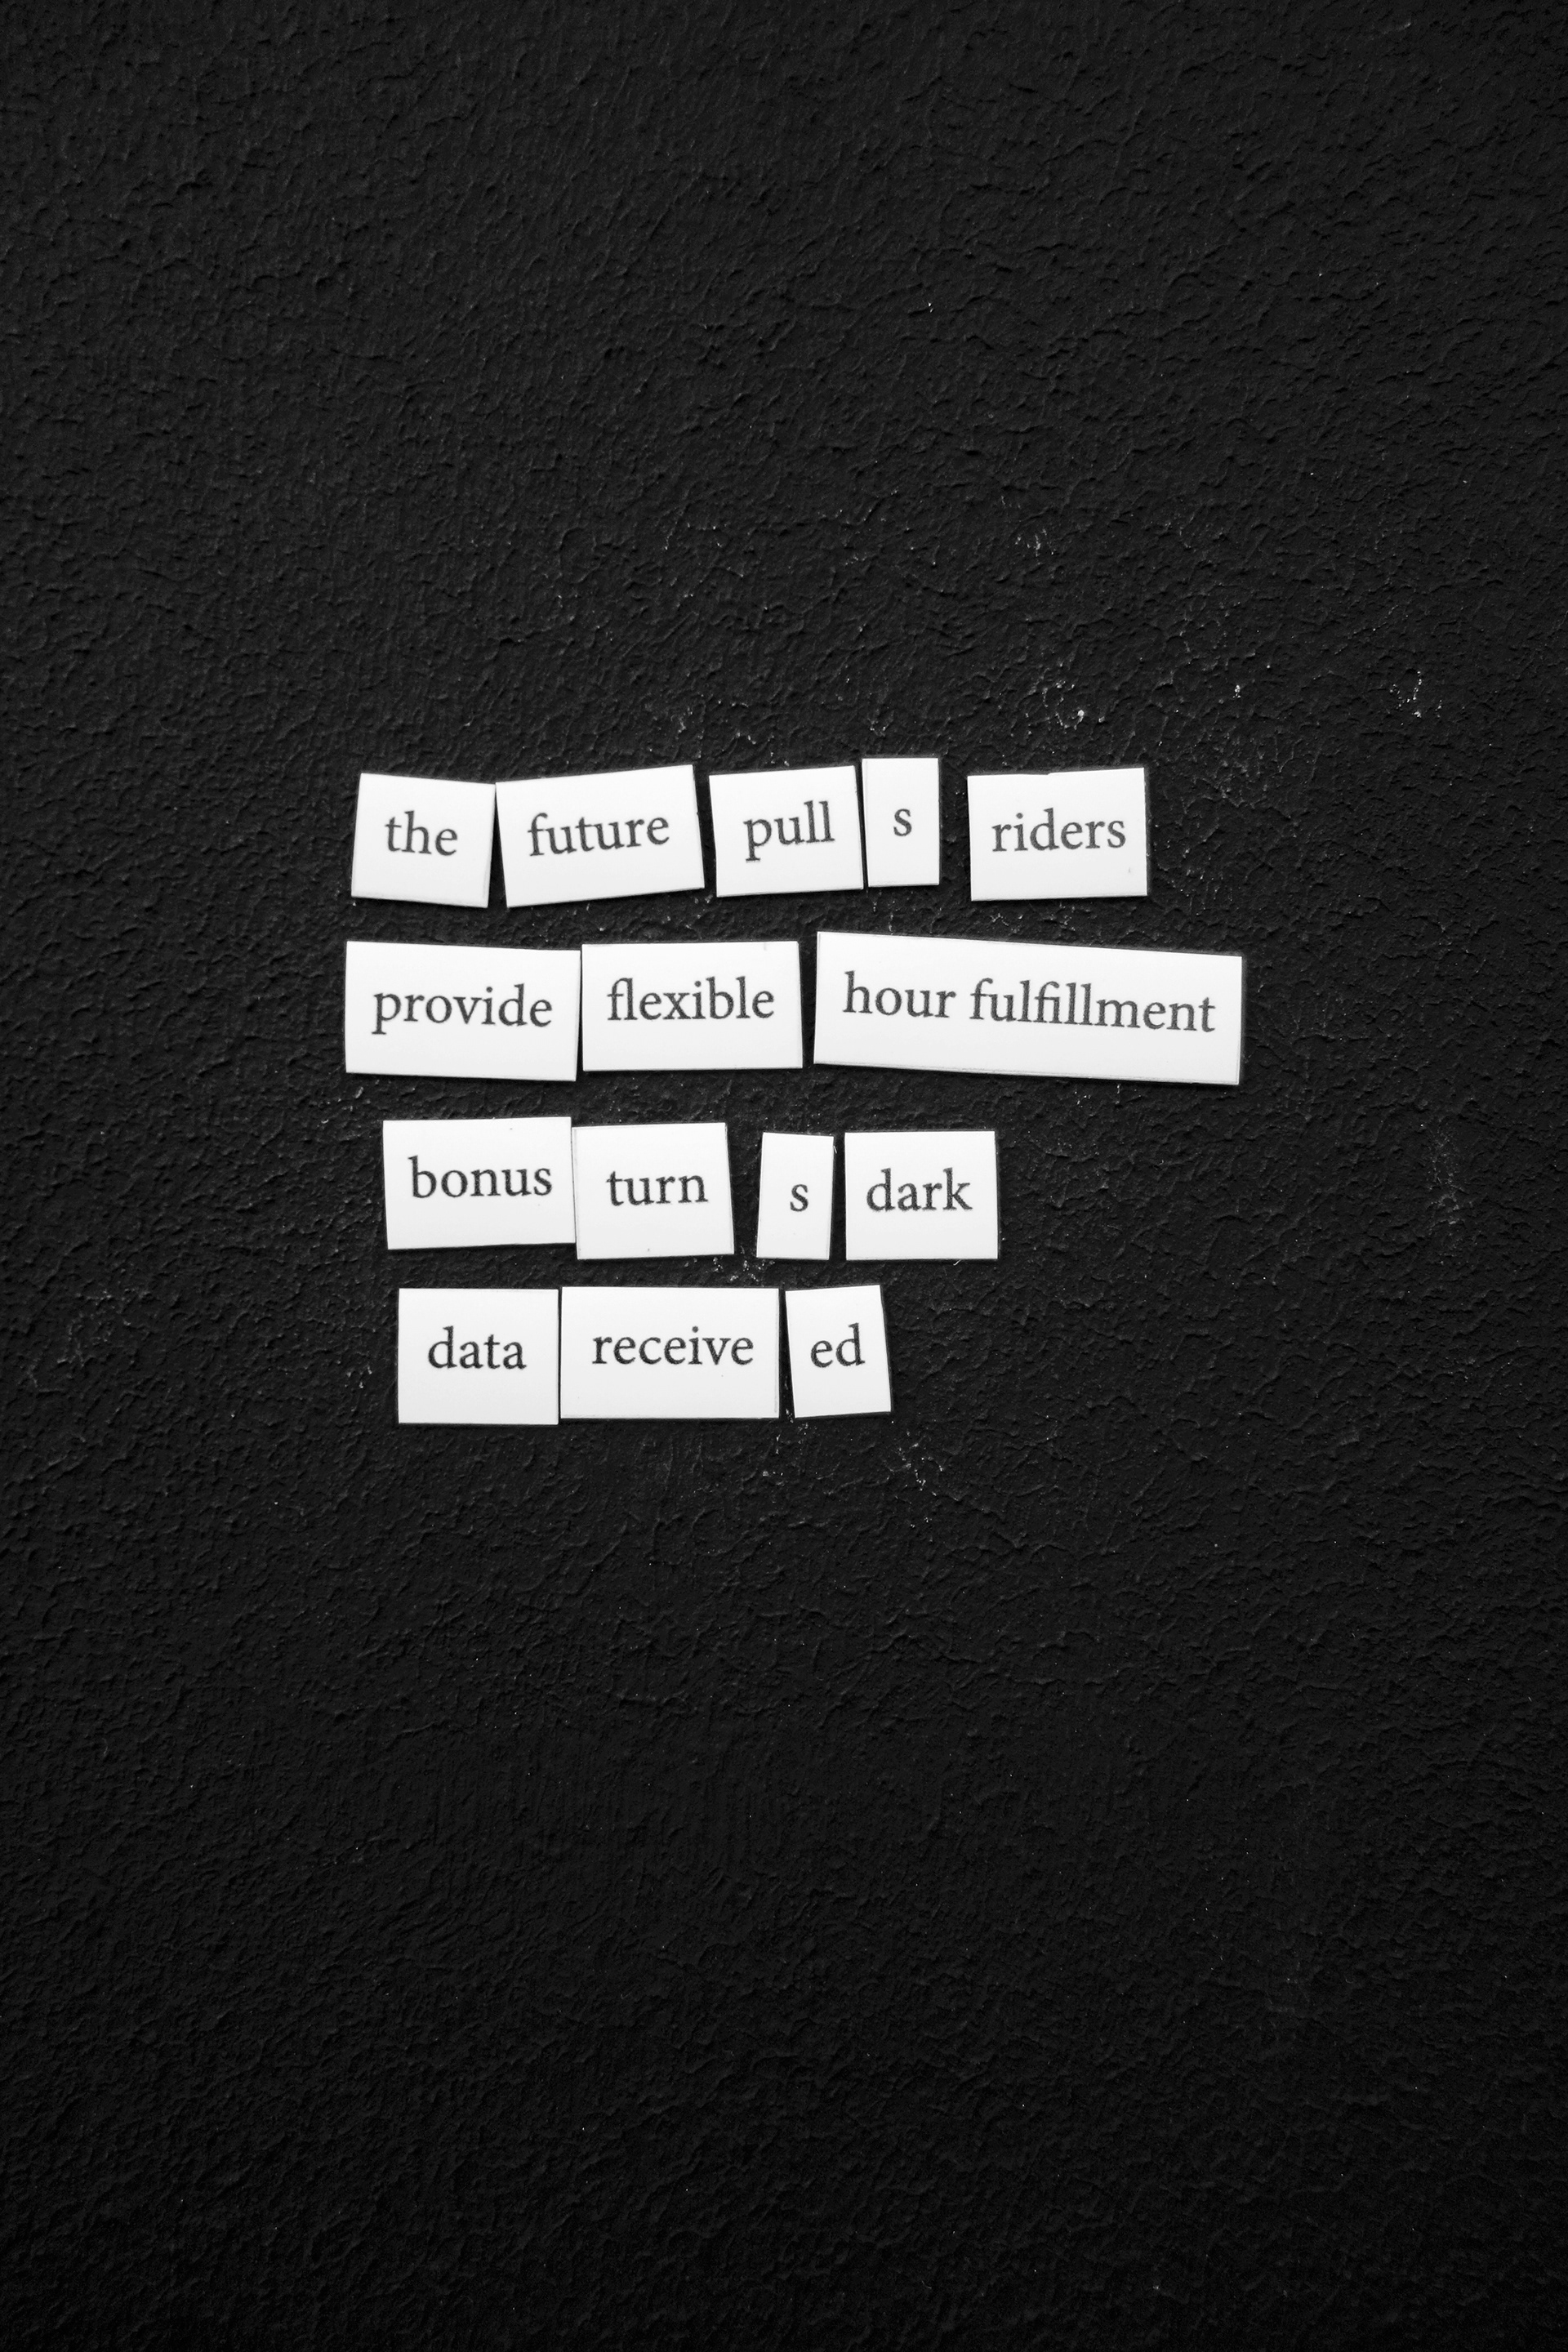 the future pull s riders
provide flexible hour fulfillment
bonus turn s dark
data receive ed